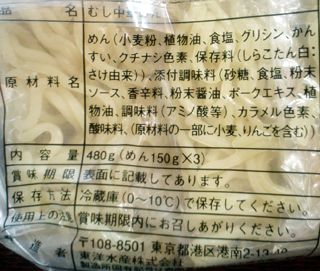 品名 むし中
原材料名 めん(小麦粉、植物油、食塩、グリシン、かん
すい、クチナシ色素、保存料(しらこたん白:
さけ由来))、添付調味料(砂糖、食塩、粉末
ソース、香辛料、粉末醤油、ポークエキス、植
物油、調味料(アミノ酸等)、カラメル色素、
酸味料、(原材料の一部に小麦、りんごを含む))
内容量 480g(めん150g×3)
賞味期限 表面に記載してあります。
保存方法 冷蔵庫(0〜10℃)で保存してください。
使用上の注意 賞味期限内にお召しあがりください。
造者 〒108-8501 東京都港区港南2-13-40
東洋水産株式会社